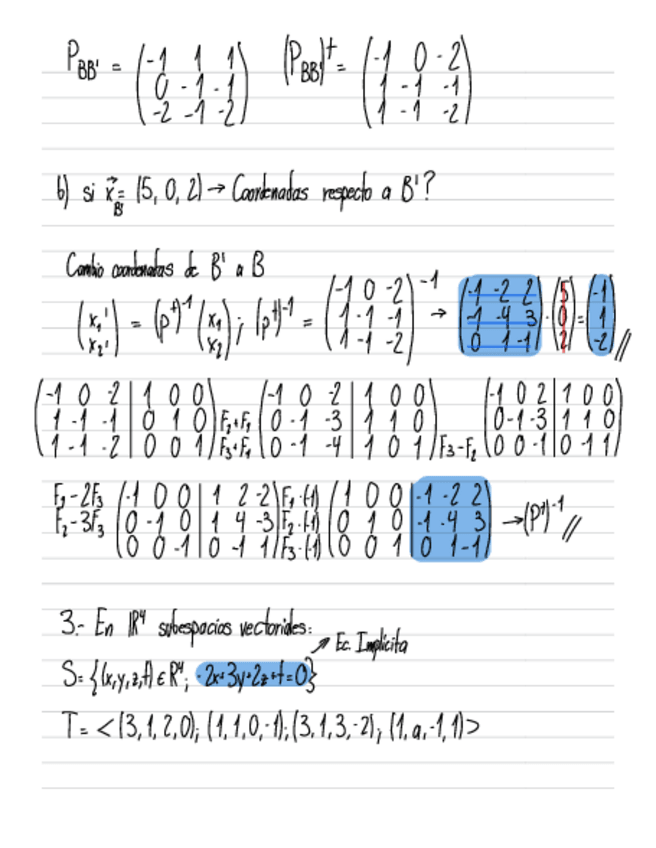 P_BB' = (-1 1 1 / 0 -1 -1 / -2 -1 -2) (P_BB')^t = (-1 0 -2 / 1 -1 -1 / 1 -1 -2)
b) si x⃗_B = (5, 0, 2) → Coordenadas respecto a B'?
Cambio coordenadas de B' a B
(x₁' / x₂') = (P^t)^-1 (x₁ / x₂); (P^t)^-1 = (-1 0 -2 / 1 -1 -1 / 1 -1 -2)^-1 → (-1 -2 2 / -1 -4 3 / 0 1 -1) · (5 / 0 / 2) = (-1 / 1 / -2) //
(-1 0 -2 | 1 0 0 / 1 -1 -1 | 0 1 0 / 1 -1 -2 | 0 0 1) F₂+F₁ F₃+F₁ (-1 0 -2 | 1 0 0 / 0 -1 -3 | 1 1 0 / 0 -1 -4 | 1 0 1) F₃-F₂ (-1 0 2 | 1 0 0 / 0 -1 -3 | 1 1 0 / 0 0 -1 | 0 -1 1)
F₁-2F₃ F₂-3F₃ (-1 0 0 | 1 2 -2 / 0 -1 0 | 1 4 -3 / 0 0 -1 | 0 -1 1) F₁·(-1) F₂·(-1) F₃·(-1) (1 0 0 | -1 -2 2 / 0 1 0 | -1 -4 3 / 0 0 1 | 0 1 -1) → (P^t)^-1 //
3.- En ℝ⁴ subespacios vectoriales:
↗ Ec. Implícita
S= {(x,y,z,t) ∈ ℝ⁴; -2x+3y+2z+t=0}
T= <(3,1,2,0); (1,1,0,-1); (3,1,3,-2); (1,a,-1,1)>